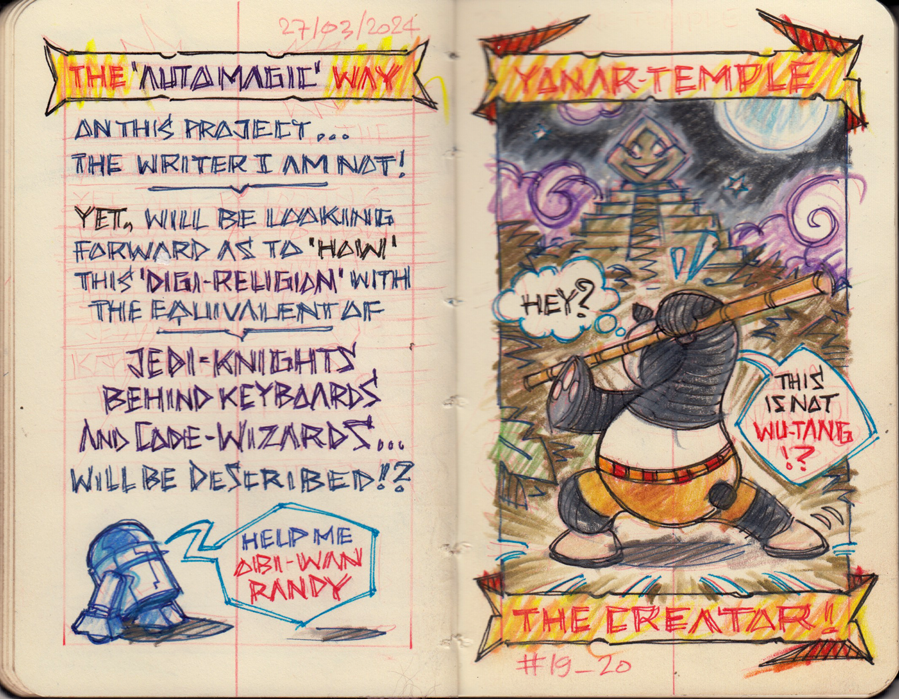 27/03/2024
THE 'AUTOMAGIC' WAY
ON THIS PROJECT...
THE WRITER I AM NOT!
YET, WILL BE LOOKING
FORWARD AS TO 'HOW'
THIS 'DIGI-RELIGION' WITH
THE EQUIVALENT OF
JEDI-KNIGHTS
BEHIND KEYBOARDS
AND CODE-WIZARDS...
WILL BE DESCRIBED!?
HELP ME
OBI-WAN
RANDY
YONAR-TEMPLE
HEY?
THIS
IS NOT
WU-TANG
!?
THE CREATOR!
#19_20